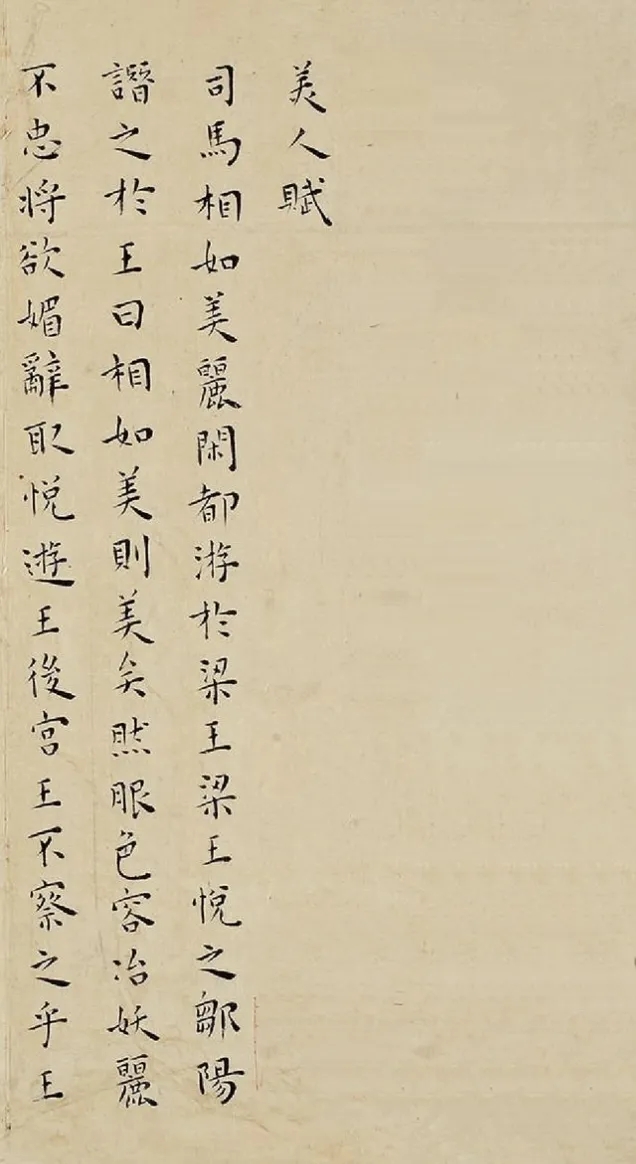 美人賦
司馬相如美麗閑都游於梁王梁王悅之鄒陽
譖之於王曰相如美則美矣然服色容冶妖麗
不忠將欲媚辭取悅遊王後宮王不察之乎王